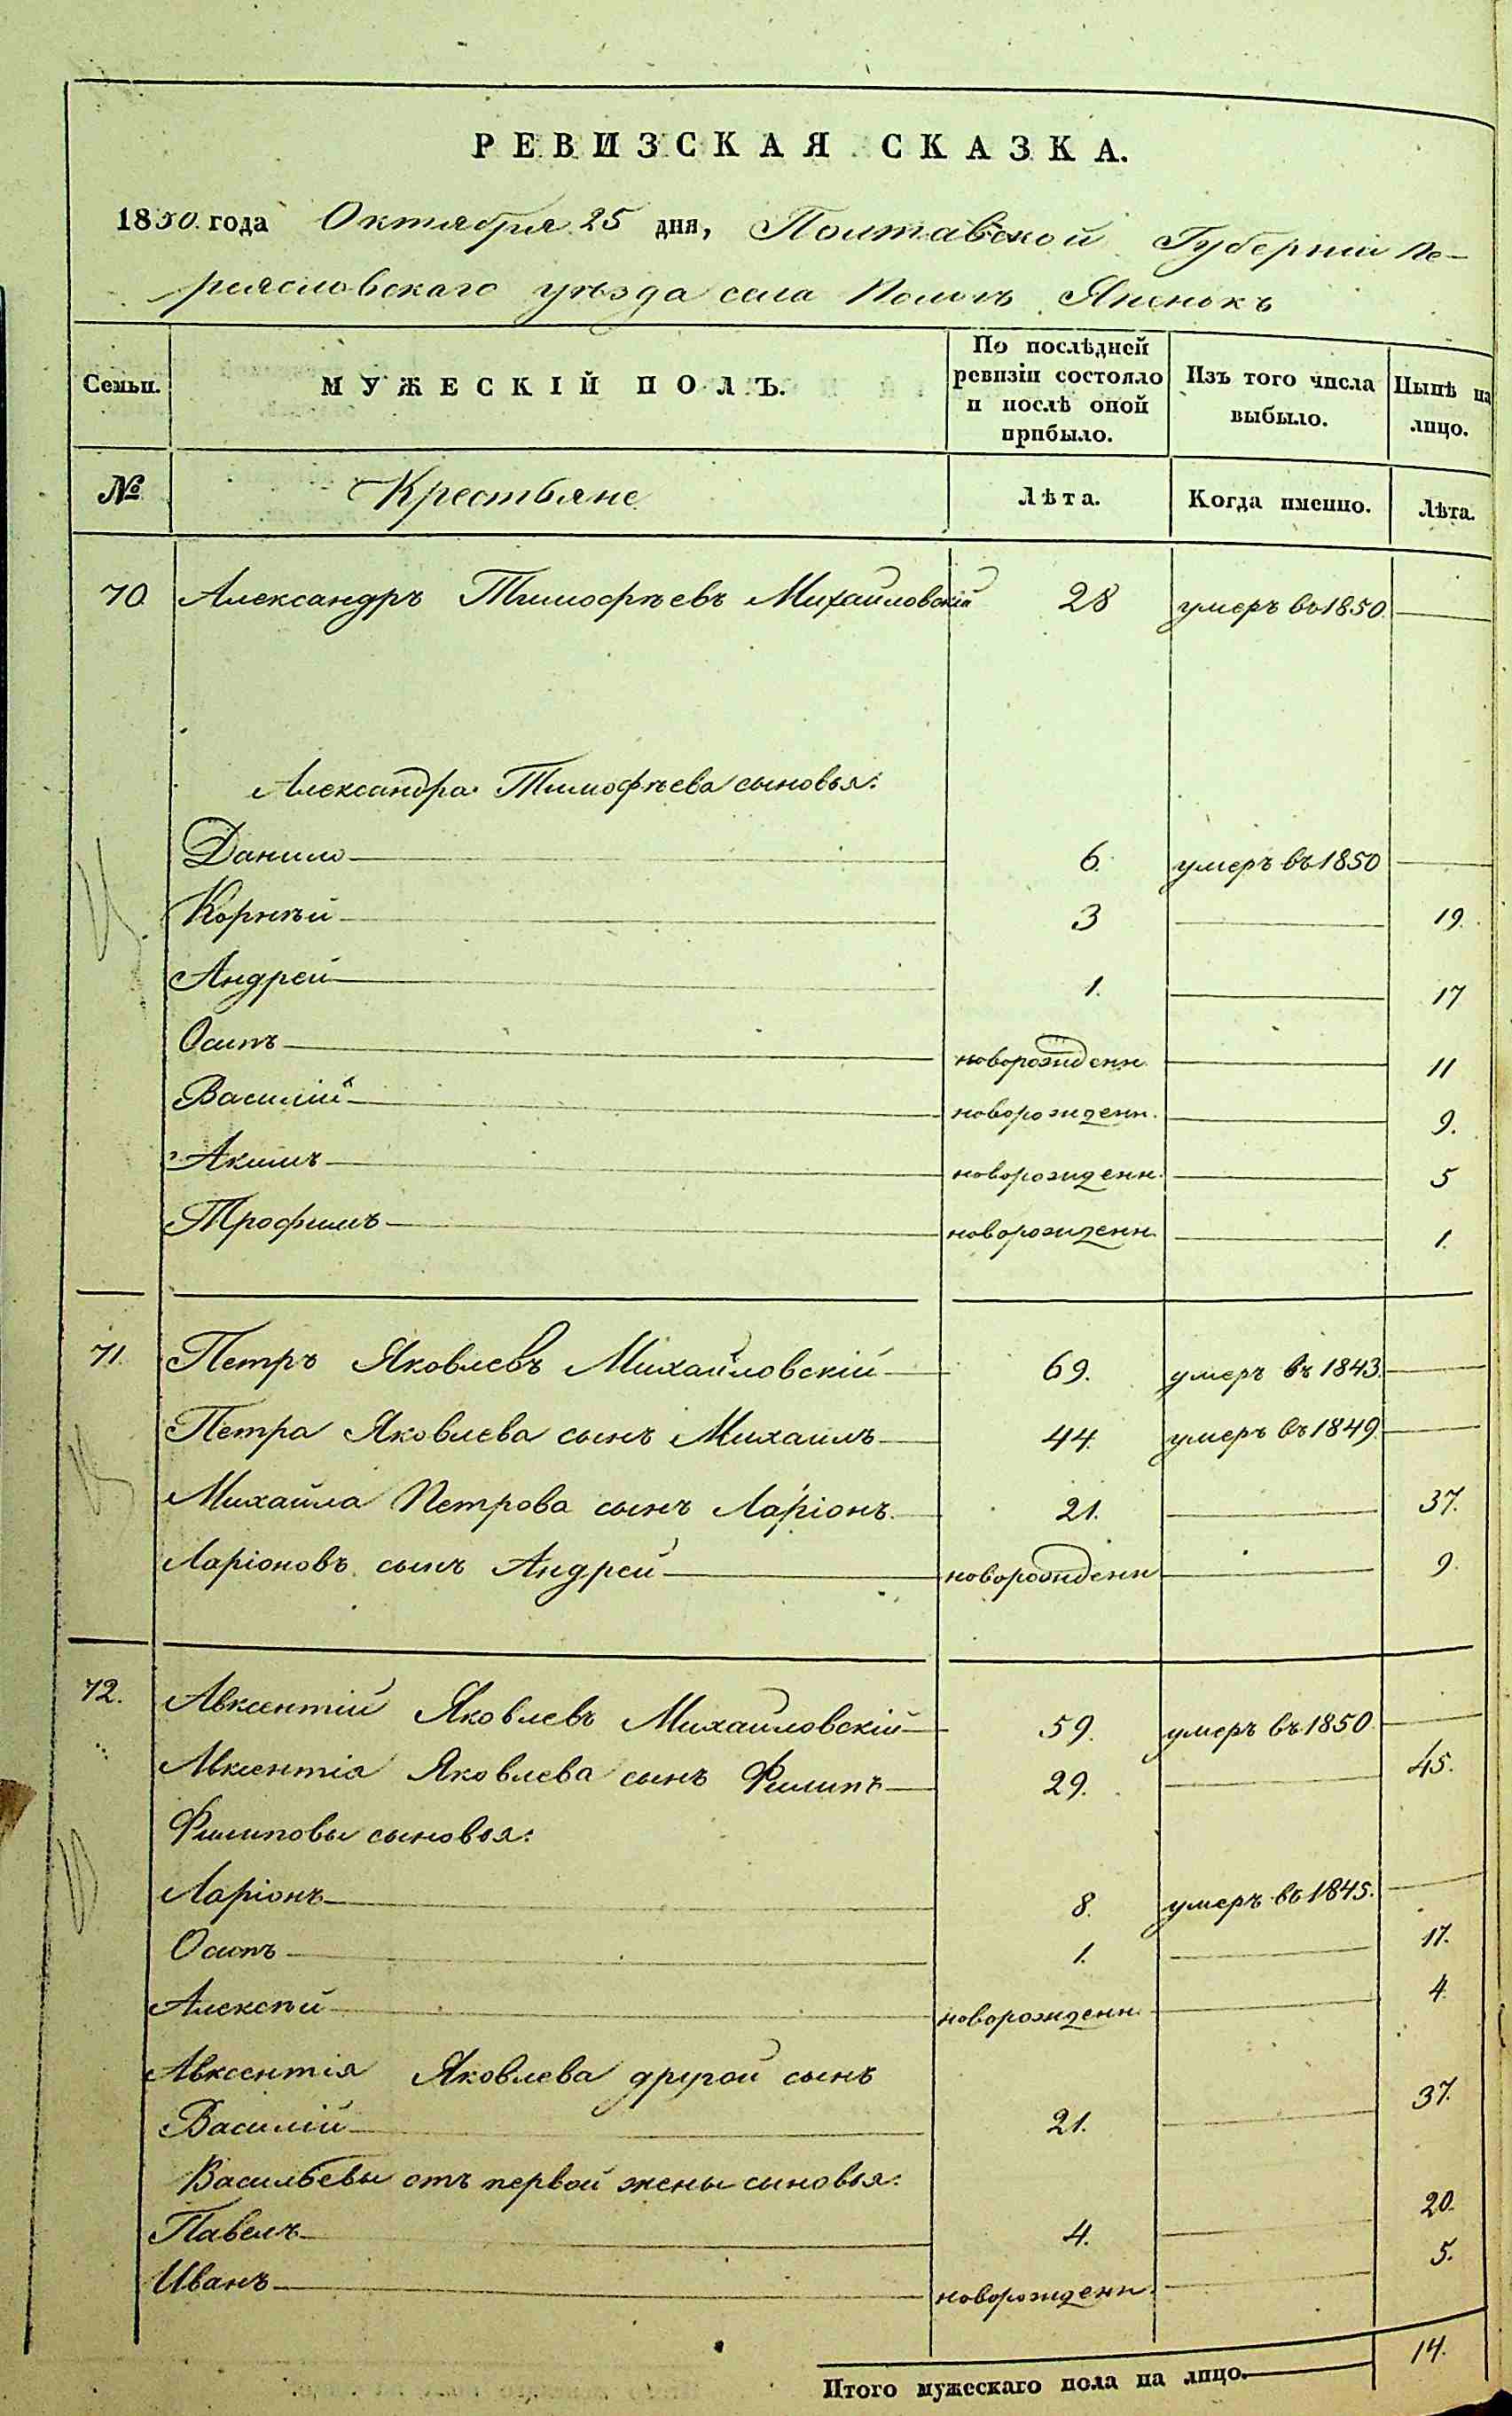 РЕВИЗСКАЯ СКАЗКА.
1850. года Октября 25 дня, Полтавской Губерніи Пе-
реясловскаго уѣзда села Яненокъ
Семьи.
МУЖЕСКІЙ ПОЛЪ.
По послѣдней ревизіи состояло и послѣ оной прибыло.
Изъ того числа выбыло.
Нынѣ на лицо.
№ Крестьяне Лѣта. Когда именно. Лѣта.
70. Александръ Тимофѣевъ Михайловскій 28 умеръ въ 1850
Александра Тимофѣева сыновья:
Данило 6. умеръ въ 1850
Корнѣй 3 19.
Андрей 1. 17
Осипъ новорожденн 11
Василій новорожденн. 9.
Акимъ новорожденн. 5
Трофимъ новорожденн. 1.
71. Петръ Яковлевъ Михайловскій 69. умеръ въ 1843.
Петра Яковлева сынъ Михаилъ 44. умеръ въ 1849.
Михайла Петрова сынъ Ларіонъ 21. 37.
Ларіоновъ сынъ Андрей новорожденн 9.
72. Авксентій Яковлевъ Михайловскій 59. умеръ въ 1850.
Авксентія Яковлева сынъ Филипъ 29. 45.
Филиповы сыновья:
Ларіонъ 8. умеръ въ 1845.
Осипъ 1. 17.
Алексѣй новорожденн. 4.
Авксентія Яковлева другой сынъ
Василій 21. 37.
Васильевы отъ первой жены сыновья:
Павелъ 4. 20.
Иванъ новорожденн. 5.
Итого мужескаго пола на лицо. 14.